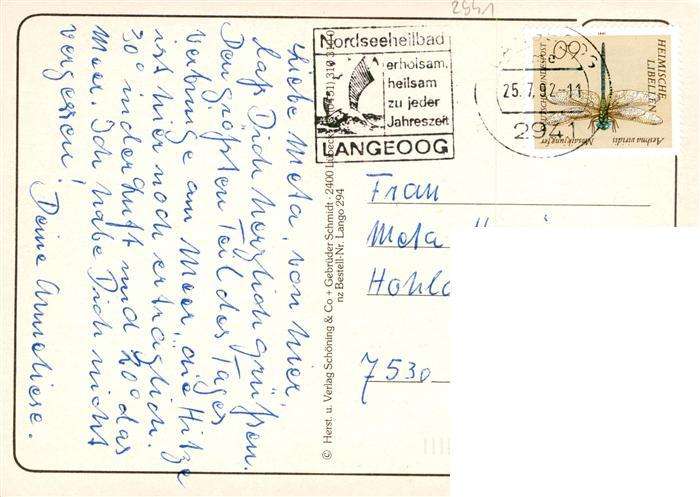 2941
Nordseeheilbad
erholsam,
heilsam
zu jeder
Jahreszeit
LANGEOOG
25.7.92-11
2941
HEIMISCHE
LIBELLEN
60
DEUTSCHE BUNDESPOST
Aeshna viridis
Mosaikjungfer
Liebe Meta, von hier
laß Dich herzlich grüßen.
Den größten Teil des Tages
verbringe am Meer, die Hitze
ist hier noch erträglich.
30° in der Luft und 20° das
Meer. Ich habe Dich nicht
vergessen! Deine Anneliese.
© Herst. u. Verlag Schöning & Co + Gebrüder Schmidt · 2400 Lübeck
nz Bestell-Nr. Lango 294
Frau
Meta
7530